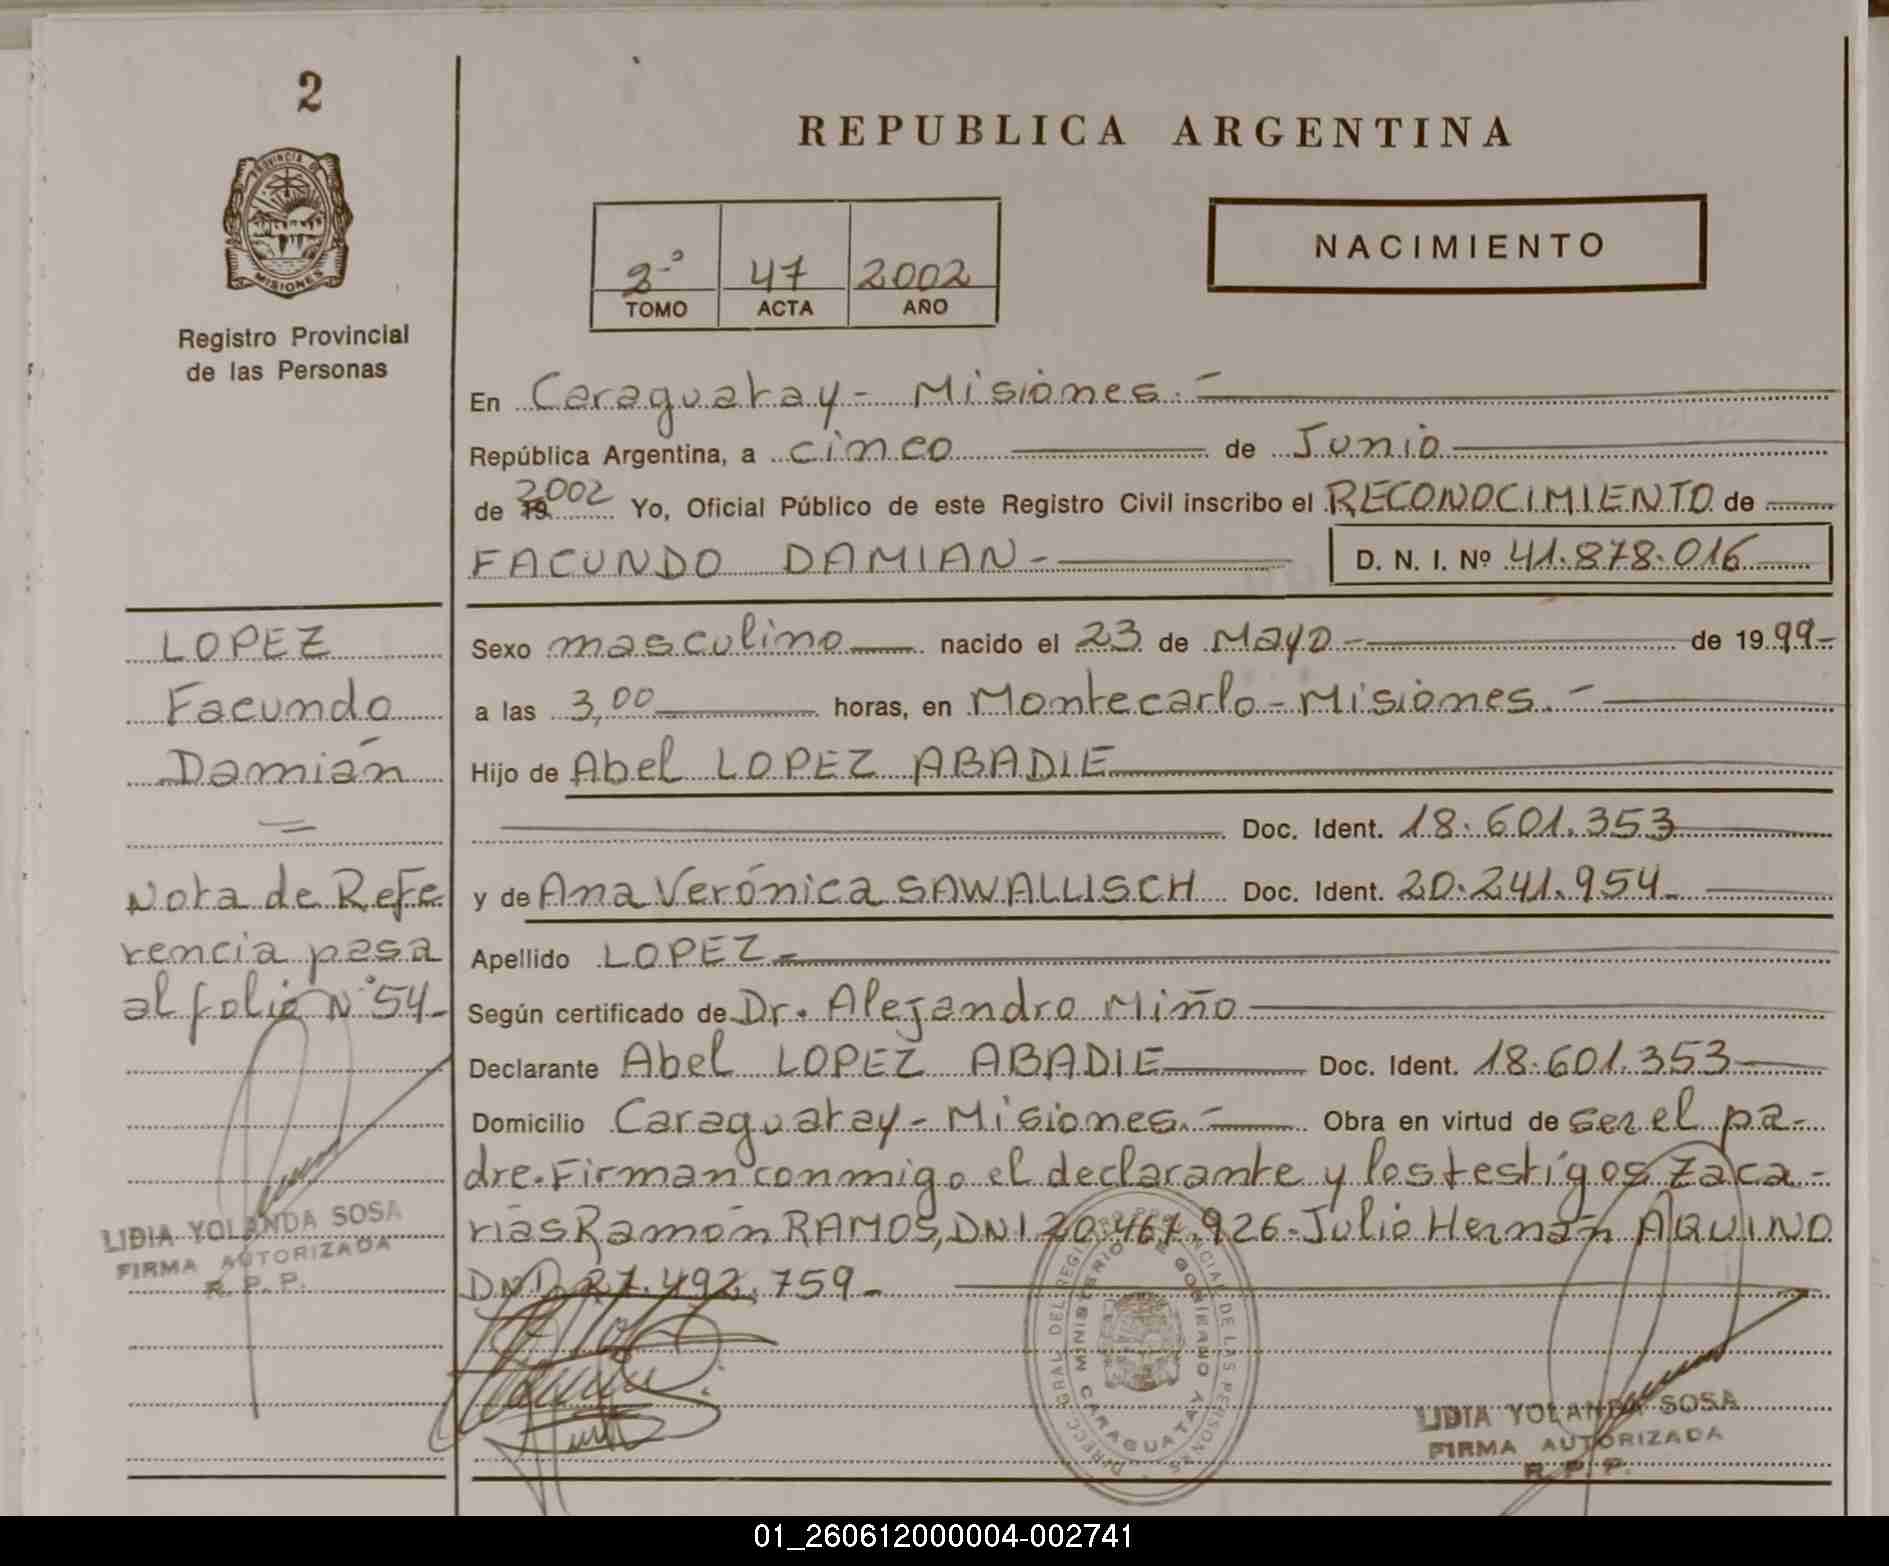 2
PROVINCIA DE
MISIONES
Registro Provincial
de las Personas
REPUBLICA ARGENTINA
2º 47 2002
TOMO ACTA AÑO
NACIMIENTO
En Caraguatay - Misiones.-
República Argentina, a cinco de Junio
de 19 2002 Yo, Oficial Público de este Registro Civil inscribo el RECONOCIMIENTO de
FACUNDO DAMIAN - D. N. I. Nº 41.878.016
LOPEZ
Facundo
Damián
Nota de Refe
rencia pasa
al folio Nº 54-
LIDIA YOLANDA SOSA
FIRMA AUTORIZADA
R. P. P.
Sexo masculino nacido el 23 de Mayo - de 1999-
a las 3,00 horas, en Montecarlo - Misiones.-
Hijo de Abel LOPEZ ABADIE
Doc. Ident. 18.601.353
y de Ana Verónica SAWALLISCH Doc. Ident. 20.241.954-
Apellido LOPEZ-
Según certificado de Dr. Alejandro Miño
Declarante Abel LOPEZ ABADIE Doc. Ident. 18.601.353
Domicilio Caraguatay - Misiones.- Obra en virtud de ser el pa-
dre. Firman conmigo el declarante y los testigos Zaca-
rías Ramón RAMOS, DNI 20.467.926- Julio Hernán AQUINO
DNI. 27.492.759-
DIRECC. GRAL. DEL REGISTRO PROVINCIAL DE LAS PERSONAS
MINISTERIO DE GOBIERNO
CARAGUATAY
LIDIA YOLANDA SOSA
FIRMA AUTORIZADA
R. P. P.
01_260612000004-002741